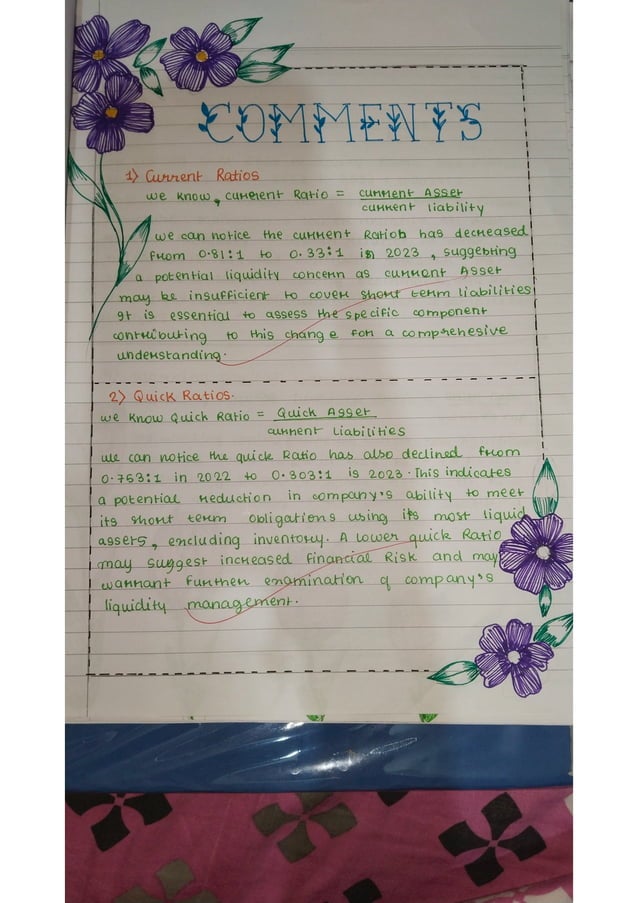 COMMENTS
1) Current Ratios
we know, current Ratio = current Asset
current liability
we can notice the current Ratio has decreased
from 0.81:1 to 0.33:1 in 2023, suggesting
a potential liquidity concern as current Asset
may be insufficient to cover short term liabilities
It is essential to assess the specific component
contributing to this change for a comprehesive
understanding.
2) Quick Ratios.
we know Quick Ratio = Quick Asset
current liabilities
we can notice the quick Ratio has also declined from
0.753:1 in 2022 to 0.303:1 is 2023. This indicates
a potential reduction in company's ability to meet
its short term obligations using its most liquid
assets, excluding inventory. A lower quick Ratio
may suggest increased financial Risk and may
warrant further examination of company's
liquidity management.